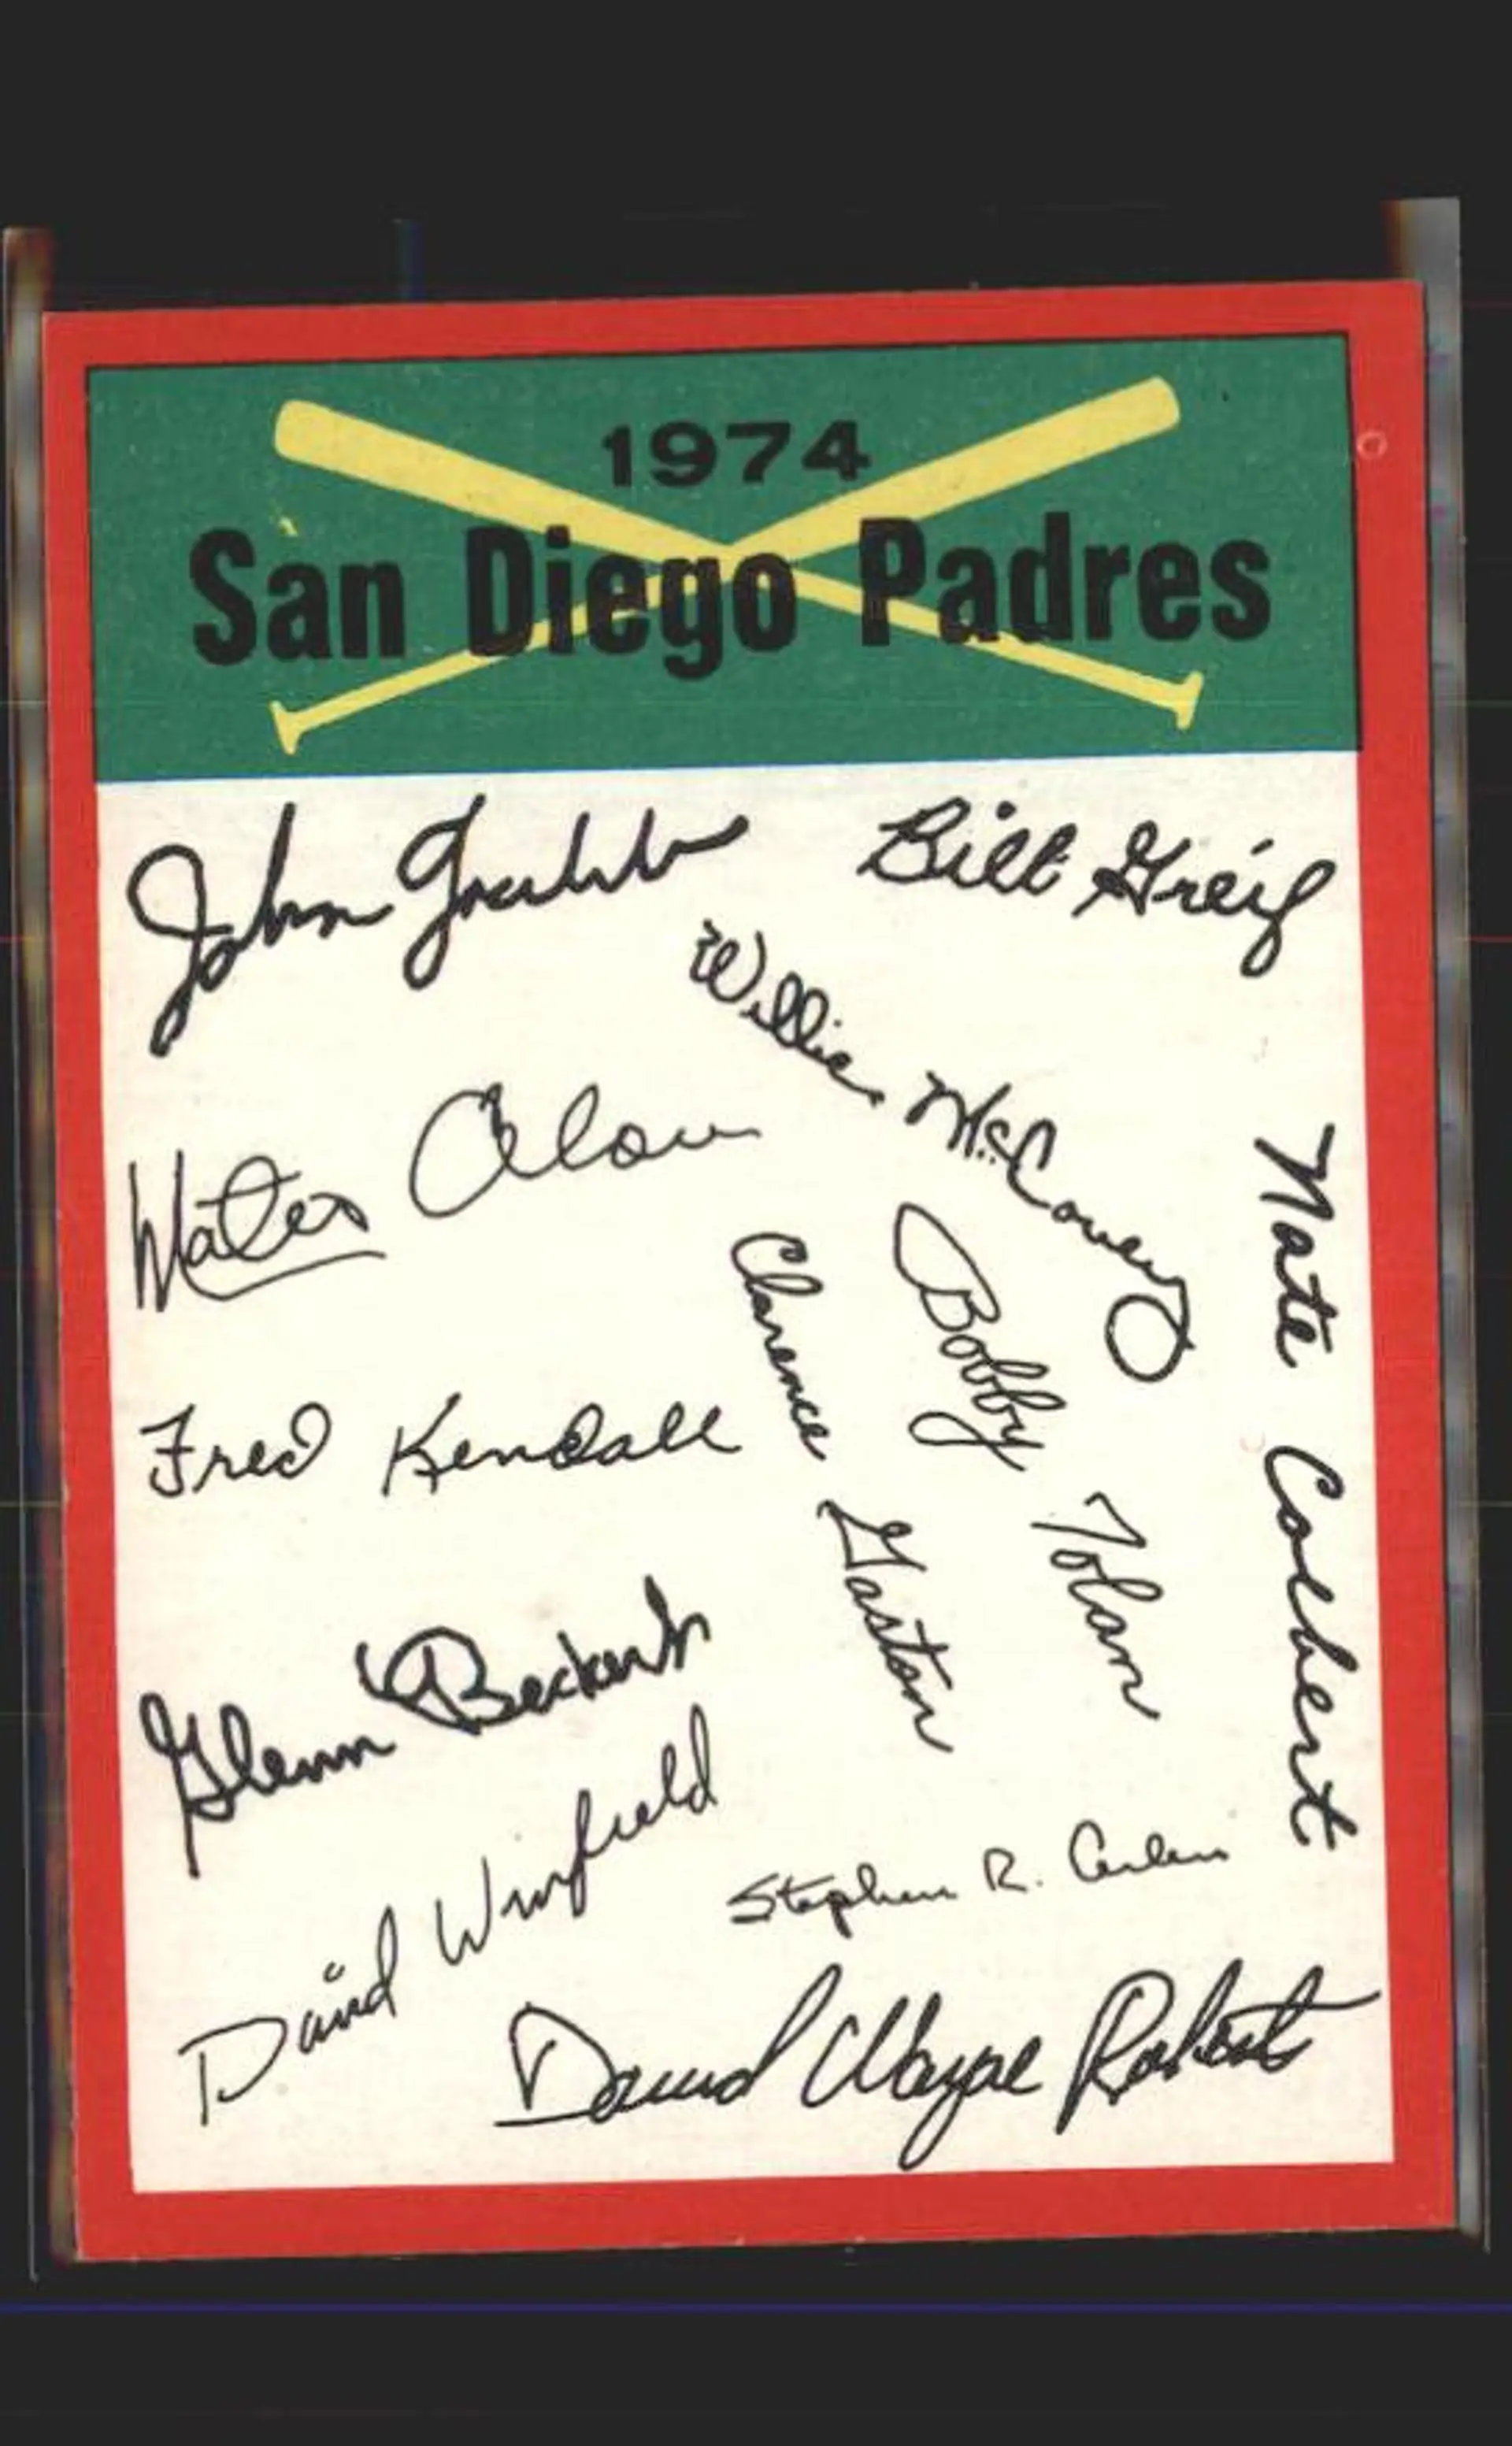 1974
San Diego Padres
John Grubb
Bill Greif
Willie McCovey
Mateo Alou
Nate Colbert
Clarence Gaston
Bobby Tolan
Fred Kendall
Glenn Beckert
David Winfield
Stephen R. Arlin
David Wayne Roberts